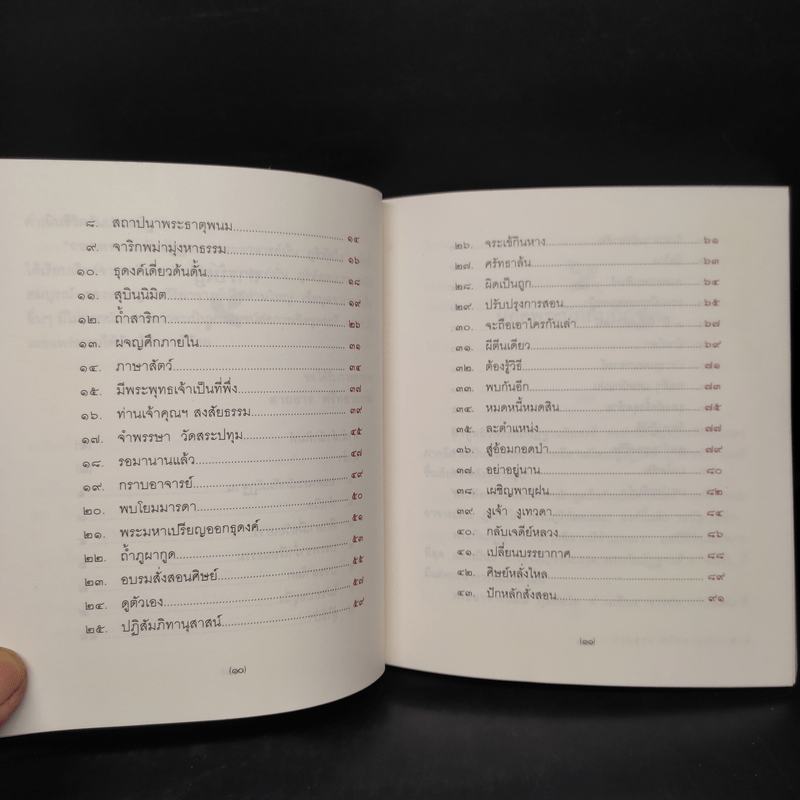 ๘. สถาปนาพระธาตุพนม ๑๔
๙. จาริกพม่ามุ่งหาธรรม ๑๖
๑๐. ธุดงค์เดี่ยวด้นดั้น ๑๘
๑๑. สุบินนิมิต ๑๙
๑๒. ถ้ำสาริกา ๒๖
๑๓. ผจญศึกภายใน ๓๑
๑๔. ภาษาสัตว์ ๓๔
๑๕. มีพระพุทธเจ้าเป็นที่พึ่ง ๓๗
๑๖. ท่านเจ้าคุณฯ สงสัยธรรม ๓๙
๑๗. จำพรรษา วัดสระปทุม ๔๕
๑๘. รอมานานแล้ว ๔๗
๑๙. กราบอาจารย์ ๔๙
๒๐. พบโยมมารดา ๕๐
๒๑. พระมหาเปรียญออกธุดงค์ ๕๑
๒๒. ถ้ำภูผากูด ๕๓
๒๓. อบรมสั่งสอนศิษย์ ๕๕
๒๔. ดูตัวเอง ๕๗
๒๕. ปฏิสัมภิทานุสาสน์ ๕๙
(๑๐)
๒๖. จระเข้กินหาง ๖๑
๒๗. ศรัทธาล้น ๖๓
๒๘. ผิดเป็นถูก ๖๔
๒๙. ปรับปรุงการสอน ๖๕
๓๐. จะถือเอาใครกันเล่า ๖๗
๓๑. ผีตีนเดียว ๖๙
๓๒. ต้องรู้วิธี ๗๑
๓๓. พบกันอีก ๗๓
๓๔. หมดหนี้หมดสิน ๗๕
๓๕. ละตำแหน่ง ๗๗
๓๖. สู่อ้อมกอดป่า ๗๙
๓๗. อย่าอยู่นาน ๘๐
๓๘. เผชิญพายุฝน ๘๒
๓๙. งูเจ้า งูเทวดา ๘๔
๔๐. กลับเจดีย์หลวง ๘๖
๔๑. เปลี่ยนบรรยากาศ ๘๘
๔๒. ศิษย์หลั่งไหล ๘๙
๔๓. ปักหลักสั่งสอน ๙๑
(๑๑)